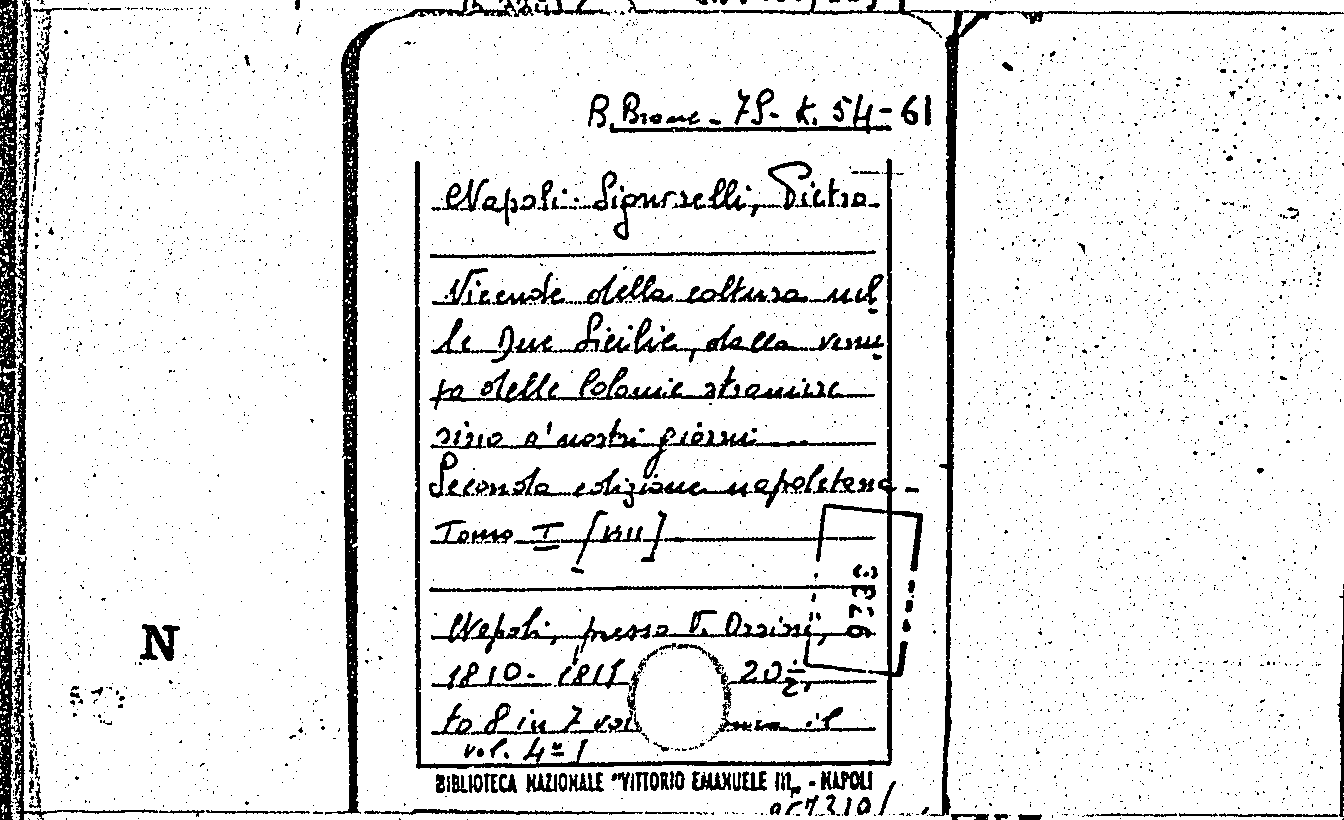 B. Branc. 75. K. 54-61
Napoli-Signorelli, Pietro
Vicende della coltura nel
le Due Sicilie, dalla venu
ta delle Colonie straniere
sino a' nostri giorni....
Seconda edizione napoletana.
Tomo I [VIII]
Napoli, presso V. Orsini,
1810-1811 20½
to 8 in 7 vol
vol. 4º
N
BIBLIOTECA NAZIONALE "VITTORIO EMANUELE III„ - NAPOLI